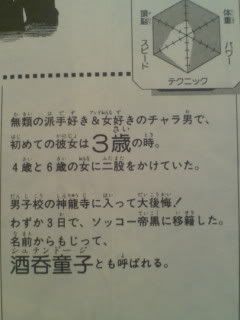 頭脳
体重
スピード
パワー
テクニック
無類の派手好き&女好きのチャラ男で、
初めての彼女は3歳の時。
4歳と6歳の女に二股をかけていた。
男子校の神龍寺に入って大後悔!
わずか3日で、ソッコー帝黒に移籍した。
名前からもじって、
シュテンドージ
酒呑童子とも呼ばれる。